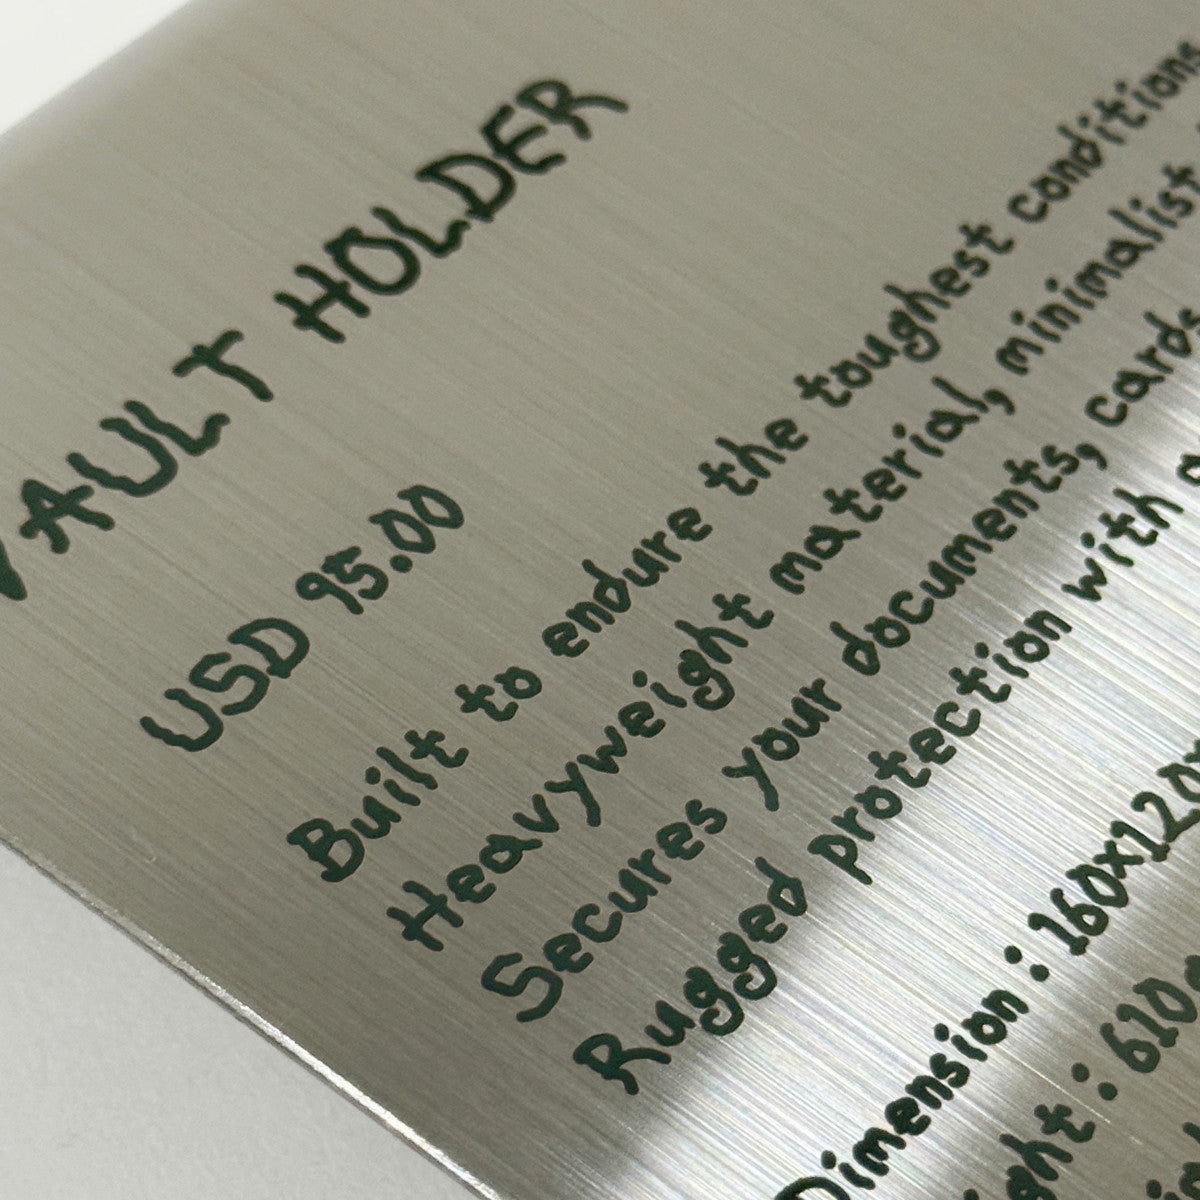 VAULT HOLDER
USD 95.00
Built to endure the toughest conditions
Heavyweight material, minimalist
Secures your documents, cards
Rugged protection with
Dimension : 160x120
: 610